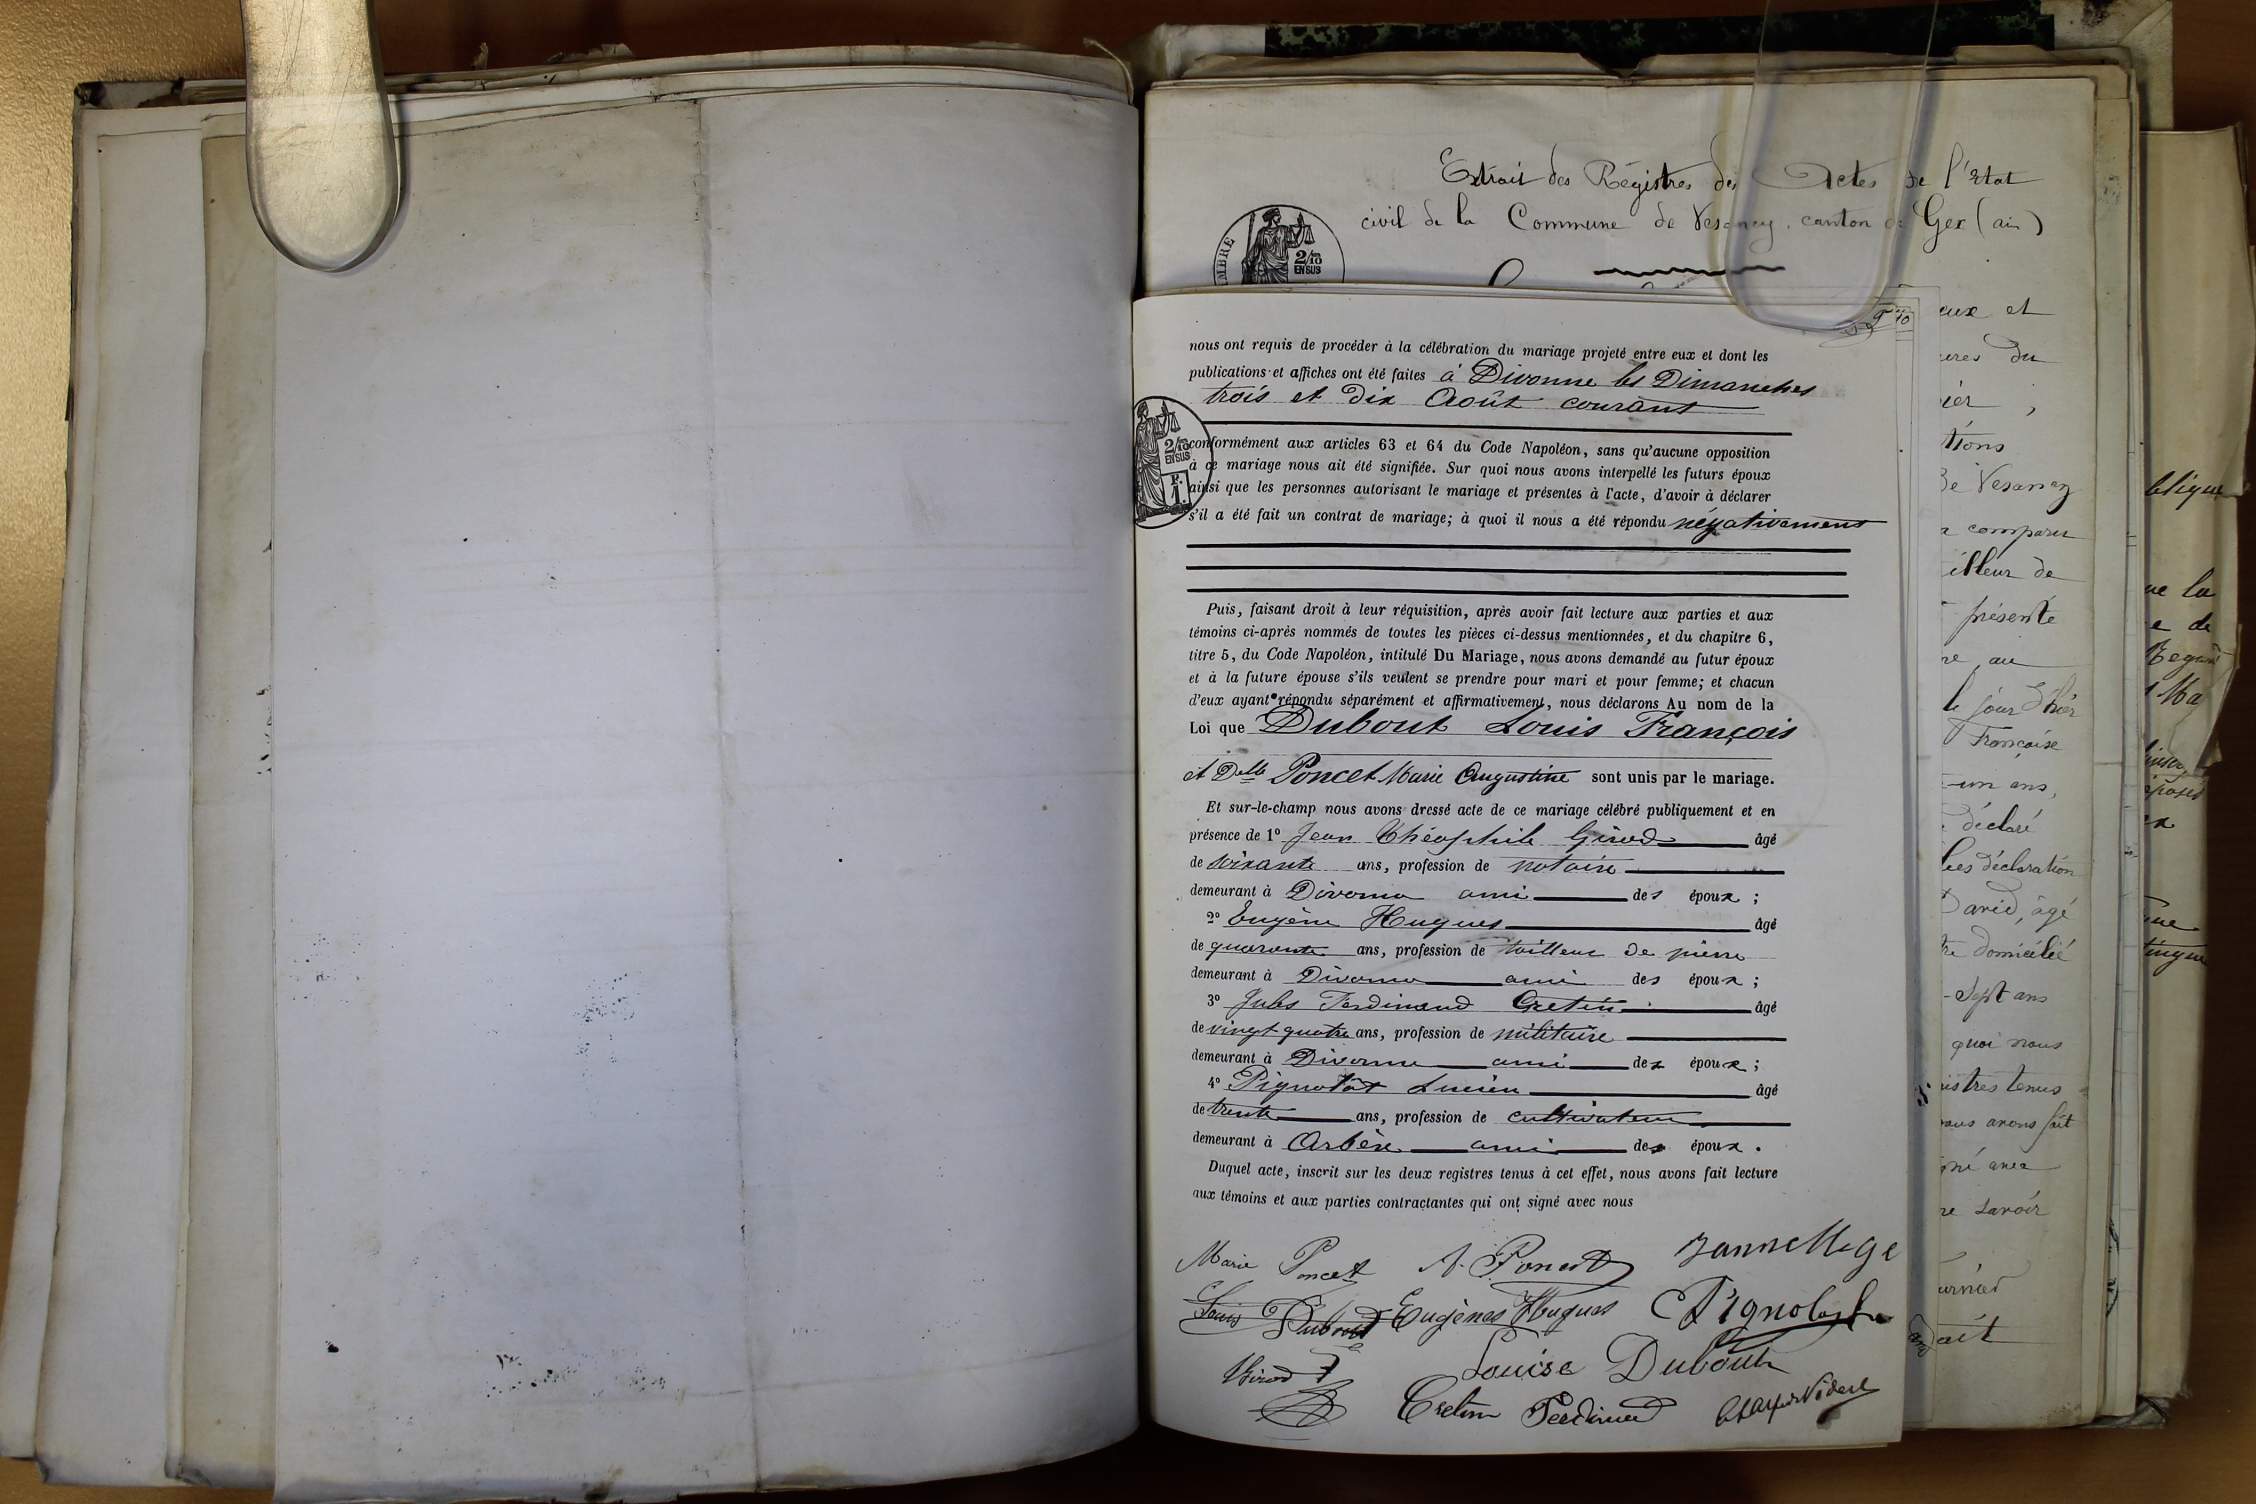 Extrait des Régistres des Actes de l'Etat
civil de la Commune de Vesancy, canton de Gex (ain)
MBRE
2/10
EN SUS
nous ont requis de procéder à la célébration du mariage projeté entre eux et dont les
publications et affiches ont été faites à Divonne les Dimanches
trois et dix Août courant
2/10
EN SUS
conformément aux articles 63 et 64 du Code Napoléon, sans qu'aucune opposition
à ce mariage nous ait été signifiée. Sur quoi nous avons interpellé les futurs époux
ainsi que les personnes autorisant le mariage et présentes à l'acte, d'avoir à déclarer
s'il a été fait un contrat de mariage; à quoi il nous a été répondu négativement
Puis, faisant droit à leur réquisition, après avoir fait lecture aux parties et aux
témoins ci-après nommés de toutes les pièces ci-dessus mentionnées, et du chapitre 6,
titre 5, du Code Napoléon, intitulé Du Mariage, nous avons demandé au futur époux
et à la future épouse s'ils veulent se prendre pour mari et pour femme; et chacun
d'eux ayant répondu séparément et affirmativement, nous déclarons Au nom de la
Loi que Dubout Louis François
et Delle Poncet Marie Augustine sont unis par le mariage.
Et sur-le-champ nous avons dressé acte de ce mariage célébré publiquement et en
présence de 1º Jean Théophile Girod âgé
de soixante ans, profession de notaire
demeurant à Divonne ami des époux ;
2º Eugène Hugues âgé
de quarante ans, profession de tailleur de pierre
demeurant à Divonne ami des époux ;
3º Jules Ferdinand Cretin âgé
de vingt quatre ans, profession de militaire
demeurant à Divonne ami des époux ;
4º Pignolat Lucien âgé
de trente ans, profession de cultivateur
demeurant à Arbère ami des époux .
Duquel acte, inscrit sur les deux registres tenus à cet effet, nous avons fait lecture
aux témoins et aux parties contractantes qui ont signé avec nous
Marie Poncet
Louis Dubout Eugènes Hugues
Girod Louise Dubout
Cretin Ferdinand
eux et
du
tions
de Vesancy
comparu
tailleur de
présenté
au
le jour d'hier
Française
un ans,
déclaré
déclaration
David, âgé
domicilié
sept ans
quoi nous
tenus
nous avons fait
savoir